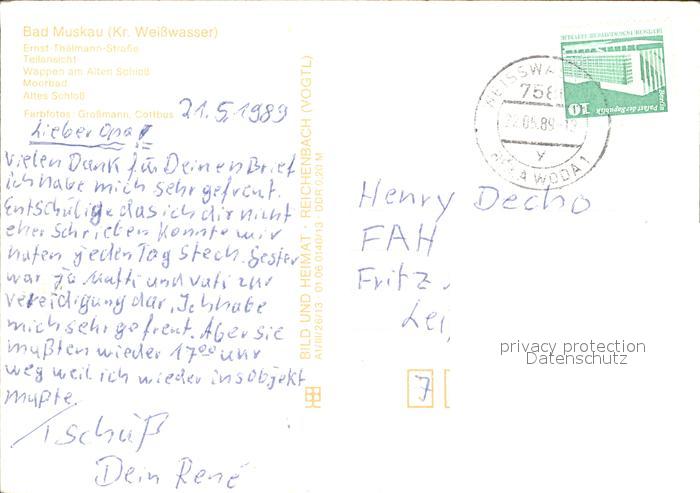 Bad Muskau (Kr. Weißwasser)
Ernst-Thälmann-Straße
Teilansicht
Wappen am Alten Schloß
Moorbad
Altes Schloß
Farbfotos: Großmann, Cottbus
21.5.1989
Lieber Opa!
Vielen Dank für Deinen Brief
ich habe mich sehr gefreut.
Entschülige das ich dir nicht
eher schrieben konnte wir
hatten jeden Tag Stech. Gester
war ja Mutti und Vati zur
Vereidigung dar. Ich habe
mich sehr gefreut. Aber sie
mußten wieder 17⁰⁰ Uhr
weg weil ich wieder ins Objekt
mußte.
Tschüß
Dein René
BILD UND HEIMAT · REICHENBACH (VOGTL)
A1/III/26/13 01 06 0140/13 · DDR 0,20 M
10
Berlin Palast der Republik
DEUTSCHE DEMOKRATISCHE REPUBLIK
WEISSWA
758
.05.89
y
WODA 1
Henry Decho
FAH
Fritz
Lei
7
privacy protection
Datenschutz